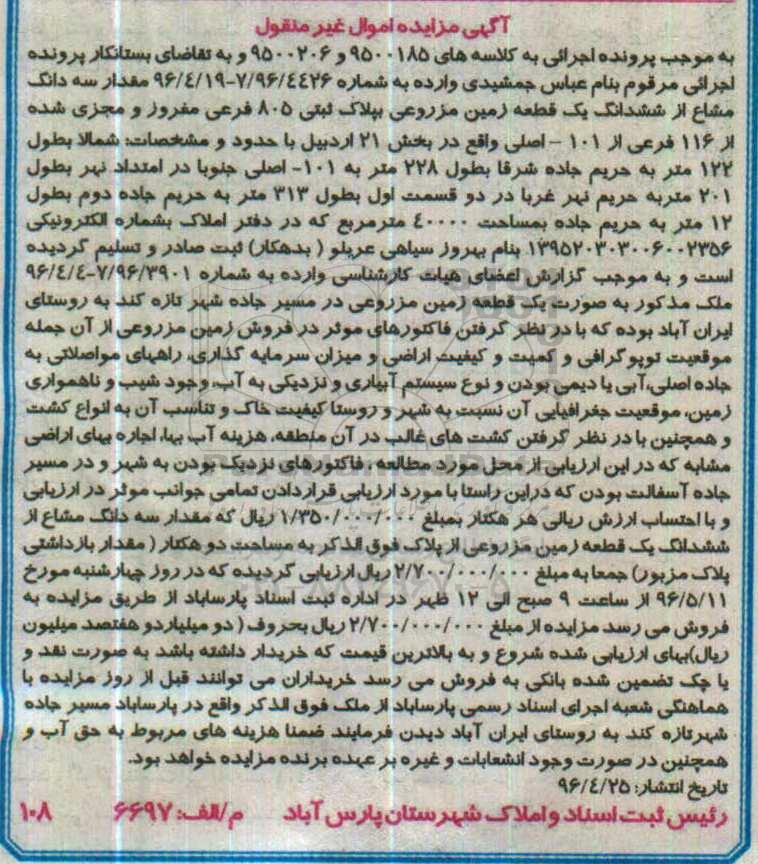 آگهی مزایده اموال غیر منقول
به موجب پرونده اجرائی به کلاسه های ۹۵۰۰۱۸۵ و ۹۵۰۰۲۰۶ و به تقاضای بستانکار پرونده
اجرائی مرقوم بنام عباس جمشیدی وارده به شماره ۷/۹۶/۴۴۲۶-۹۶/۴/۱۹ مقدار سه دانگ
مشاع از ششدانگ یک قطعه زمین مزروعی بپلاک ثبتی ۸۰۵ فرعی مفروز و مجزی شده
از ۱۱۶ فرعی از ۱۰۱ – اصلی واقع در بخش ۲۱ اردبیل با حدود و مشخصات: شمالا بطول
۱۲۲ متر به حریم جاده شرقا بطول ۲۲۸ متر به ۱۰۱- اصلی جنوبا در امتداد نهر بطول
۲۰۱ متربه حریم نهر غربا در دو قسمت اول بطول ۳۱۳ متر به حریم جاده دوم بطول
۱۲ متر به حریم جاده بمساحت ۴۰۰۰۰ مترمربع که در دفتر املاک بشماره الکترونیکی
۱۳۹۵۲۰۳۰۳۰۰۶۰۰۲۳۵۶ بنام بهروز سیاهی عربلو ( بدهکار) ثبت صادر و تسلیم گردیده
است و به موجب گزارش اعضای هیات کارشناسی وارده به شماره ۷/۹۶/۳۹۰۱-۹۶/۴/۴
ملک مذکور به صورت یک قطعه زمین مزروعی در مسیر جاده شهر تازه کند به روستای
ایران آباد بوده که با در نظر گرفتن فاکتورهای موثر در فروش زمین مزروعی از آن جمله
موقعیت توپوگرافی و کمیت و کیفیت اراضی و میزان سرمایه گذاری، راههای مواصلاتی به
جاده اصلی،آبی یا دیمی بودن و نوع سیستم آبیاری و نزدیکی به آب، وجود شیب و ناهمواری
زمین، موقعیت جغرافیایی آن نسبت به شهر و روستا کیفیت خاک و تناسب آن به انواع کشت
و همچنین با در نظر گرفتن کشت های غالب در آن منطقه، هزینه آب بها، اجاره بهای اراضی
مشابه که در این ارزیابی از محل مورد مطالعه ، فاکتورهای نزدیک بودن به شهر و در مسیر
جاده آسفالت بودن که دراین راستا با مورد ارزیابی قراردادن تمامی جوانب موثر در ارزیابی
و با احتساب ارزش ریالی هر هکتار بمبلغ ۱/۳۵۰/۰۰۰/۰۰۰ ریال که مقدار سه دانگ مشاع از
ششدانگ یک قطعه زمین مزروعی از پلاک فوق الذکر به مساحت دو هکتار ( مقدار بازداشتی
پلاک مزبور) جمعا به مبلغ ۲/۷۰۰/۰۰۰/۰۰۰ ریال ارزیابی گردیده که در روز چهارشنبه مورخ
۹۶/۵/۱۱ از ساعت ۹ صبح الی ۱۲ ظهر در اداره ثبت اسناد پارساباد از طریق مزایده به
فروش می رسد مزایده از مبلغ ۲/۷۰۰/۰۰۰/۰۰۰ ریال بحروف ( دو میلیاردو هفتصد میلیون
ریال)بهای ارزیابی شده شروع و به بالاترین قیمت که خریدار داشته باشد به صورت نقد و
یا چک تضمین شده بانکی به فروش می رسد خریداران می توانند قبل از روز مزایده با
هماهنگی شعبه اجرای اسناد رسمی پارساباد از ملک فوق الذکر واقع در پارساباد مسیر جاده
شهرتازه کند به روستای ایران آباد دیدن فرمایند ضمنا هزینه های مربوط به حق آب و
همچنین در صورت وجود انشعابات و غیره بر عهده برنده مزایده خواهد بود.
تاریخ انتشار: ۹۶/۴/۲۵
رئیس ثبت اسناد و املاک شهرستان پارس آباد م/الف: ۶۶۹۷ ۱۰۸